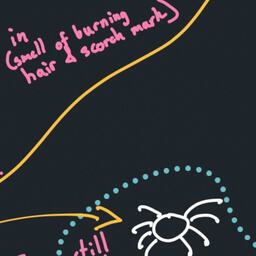 in
(smell of burning
hair & scorch mark)
still